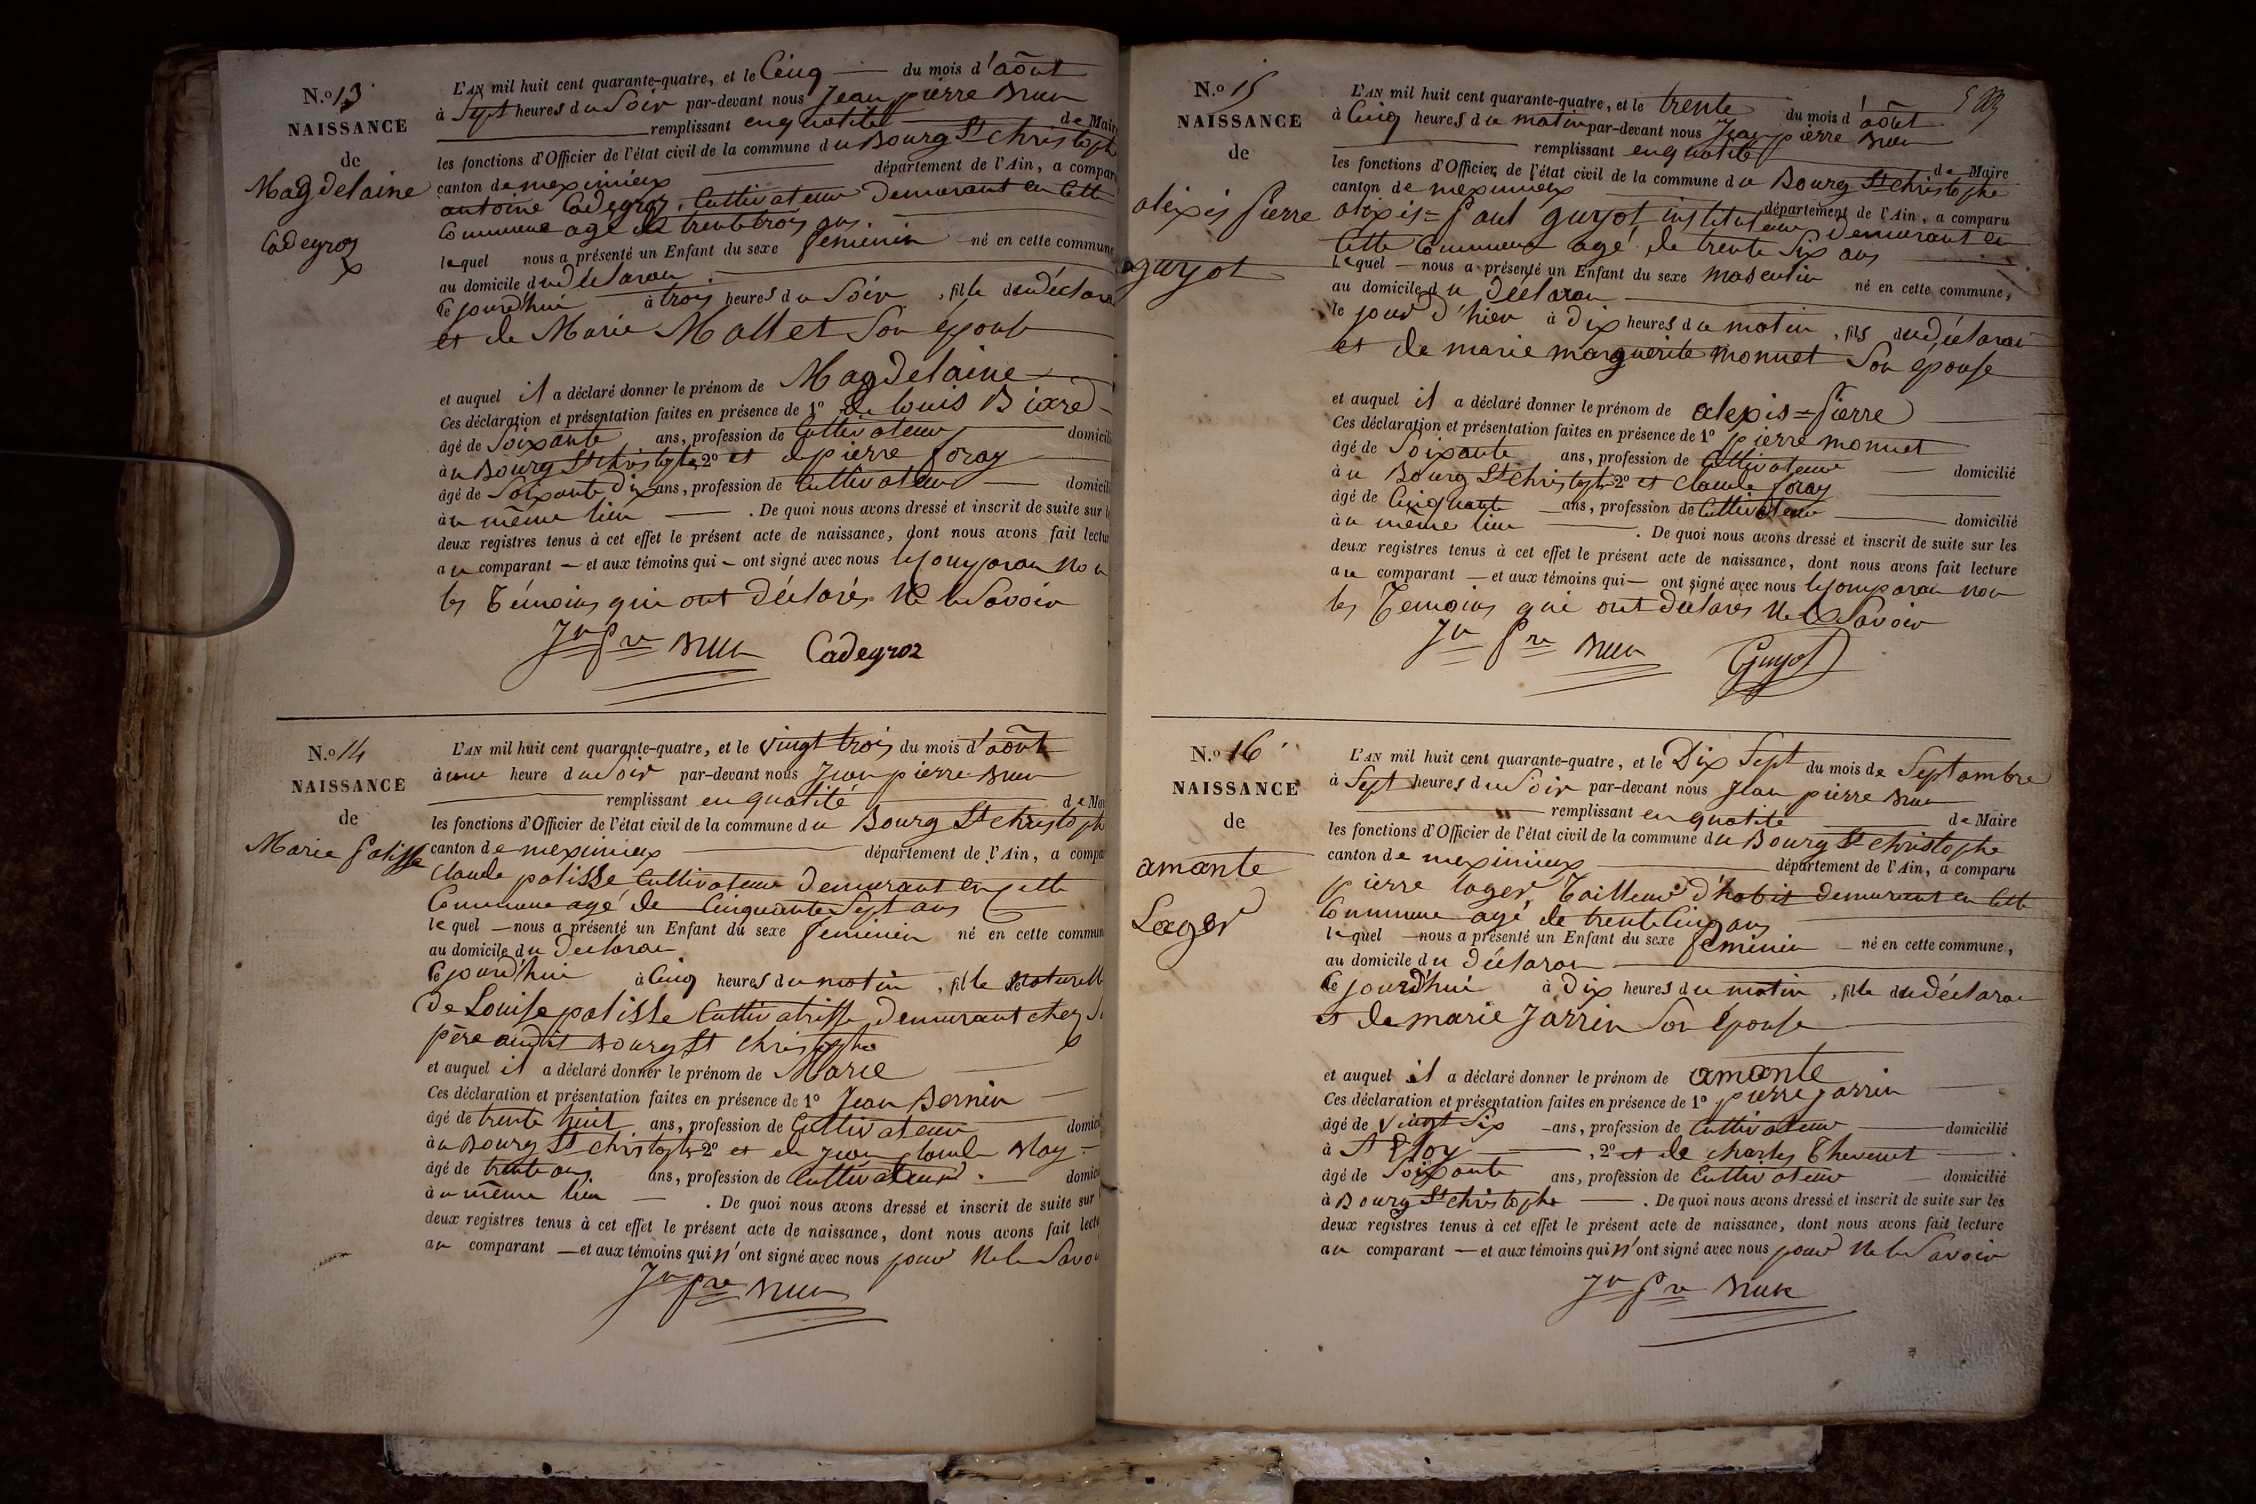 N.º 13
NAISSANCE
de
Magdelaine
Cadeyroz
L'AN mil huit cent quarante-quatre, et le Cinq du mois d'août
à Sept heures du Soir par-devant nous Jean pierre Brun
remplissant en qualité de Mair
les fonctions d'Officier de l'état civil de la commune du Bourg St christoph
canton de meximieux département de l'Ain, a compar
antoine Cadeyroz, Cultivateur Demeurant en Cette
Commune agé de trente trois ans.
lequel nous a présenté un Enfant du sexe feminin né en cette commune
au domicile du déclaran
Ce jourd'hui à trois heures du Soir, fille du déclara
et de Marie Mallet Son epouse
et auquel il a déclaré donner le prénom de Magdelaine
Ces déclaration et présentation faites en présence de 1º de louis
âgé de Soixante ans, profession de Cultivateur domicili
au Bourg St christophe 2º et de pierre foray
âgé de Soixante Dix ans, profession de Cultivateur domicili
au même lieu . De quoi nous avons dressé et inscrit de suite sur l
deux registres tenus à cet effet le présent acte de naissance, dont nous avons fait lectur
au comparant et aux témoins qui ont signé avec nous le Comparan non
les témoins qui ont déclarés Ne le Savoir
Jn Pre Brun Cadeyroz
N.º 14
NAISSANCE
de
Marie palisse
L'AN mil huit cent quarante-quatre, et le vingt trois du mois d'août
à une heure du Soir par-devant nous Jean pierre Brun
remplissant en qualité de Mai
les fonctions d'Officier de l'état civil de la commune du Bourg St christoph
canton de meximieux département de l'Ain, a compa
Claude palisse Cultivateur Demeurant en Cette
Commune agé de Cinquante Sept ans
lequel nous a présenté un Enfant du sexe feminin né en cette commun
au domicile du declaran
Ce jourd'hui à Cinq heures du matin, fille Naturelle
de Louise palisse Cultivatrisse, Demeurant chez
père audit Bourg St christophe
et auquel il a déclaré donner le prénom de Marie
Ces déclaration et présentation faites en présence de 1º Jean Bernin
âgé de trente huit ans, profession de Cultivateur domici
au Bourg St christophe 2º et de Jean Claude Blay
âgé de trente ans ans, profession de Cultivateur domici
au même lieu . De quoi nous avons dressé et inscrit de suite sur
deux registres tenus à cet effet le présent acte de naissance, dont nous avons fait lectu
au comparant et aux témoins qui n'ont signé avec nous pour Ne le Savoi
Jn Pre Brun
N.º 15
NAISSANCE
de
alexis pierre
guyot
L'AN mil huit cent quarante-quatre, et le trente du mois d'août
à Cinq heures du matin par-devant nous Jean pierre Brun
remplissant en qualité de Maire
les fonctions d'Officier de l'état civil de la commune du Bourg St christophe
canton de meximieux département de l'Ain, a comparu
alexis=paul guyot instituteur Demeurant en
Cette Commune agé de trente Six ans
lequel nous a présenté un Enfant du sexe masculin né en cette commune,
au domicile du déclaran
le jour d'hier à Dix heures du matin, fils du déclaran
et de marie marguerite monnet Son épouse
et auquel il a déclaré donner le prénom de alexis=pierre
Ces déclaration et présentation faites en présence de 1º pierre monnet
âgé de Soixante ans, profession de Cultivateur domicilié
au Bourg St christophe 2º et Claude foray
âgé de Cinquante ans, profession de Cultivateur domicilié
au même lieu . De quoi nous avons dressé et inscrit de suite sur les
deux registres tenus à cet effet le présent acte de naissance, dont nous avons fait lecture
au comparant et aux témoins qui ont signé avec nous le Comparan non
les Temoins qui ont déclarés Ne le Savoir
Jn Pre Brun Guyot
N.º 16
NAISSANCE
de
amante
Lager
L'AN mil huit cent quarante-quatre, et le Dix Sept du mois de Septambre
à Sept heures du Soir par-devant nous Jean pierre Brun
remplissant en qualité de Maire
les fonctions d'Officier de l'état civil de la commune du Bourg St christophe
canton de meximieux département de l'Ain, a comparu
pierre lager, Tailleur d'habit demeurant en Cette
Commune agé de trente Cinq ans
lequel nous a présenté un Enfant du sexe feminin né en cette commune,
au domicile du déclaran
Ce jourd'hui à Dix heures du matin, fille du déclaran
et de marie Jarrin Son épouse
et auquel il a déclaré donner le prénom de amante
Ces déclaration et présentation faites en présence de 1º pierre Jarrin
âgé de vingt Six ans, profession de Cultivateur domicilié
à St Eloy , 2º et de charles Thevenet
âgé de Soixante ans, profession de Cultivateur domicilié
à Bourg St christophe . De quoi nous avons dressé et inscrit de suite sur les
deux registres tenus à cet effet le présent acte de naissance, dont nous avons fait lecture
au comparant et aux témoins qui n'ont signé avec nous pour Ne le Savoir
Jn Pre Brun